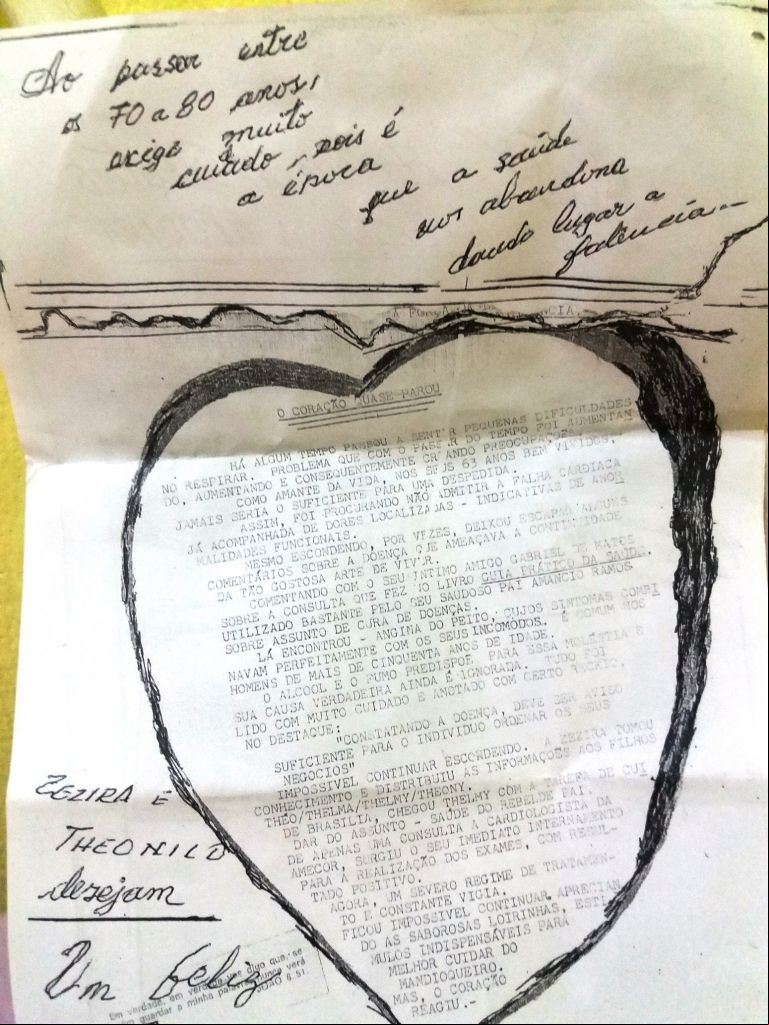 Ao passar entre
os 70 a 80 anos,
exige muito
cuidado, pois é
a época
que a saúde
nos abandona
dando lugar a
falência -
O CORAÇÃO QUASE PAROU
HÁ ALGUM TEMPO PASSOU A SENTIR PEQUENAS DIFICULDADES
NO RESPIRAR. PROBLEMA QUE COM O PASSAR DO TEMPO FOI AUMENTAN
DO, AUMENTANDO E CONSEQUENTEMENTE CRIANDO PREOCUPAÇÕES.
COMO AMANTE DA VIDA, NOS SEUS 63 ANOS BEM VIVIDOS,
JAMAIS SERIA O SUFICIENTE PARA UMA DESPEDIDA.
ASSIM, FOI PROCURANDO NÃO ADMITIR A FALHA CARDIACA
JÁ ACOMPANHADA DE DORES LOCALIZADAS - INDICATIVAS DE ANOR
MALIDADES FUNCIONAIS.
MESMO ESCONDENDO, POR VEZES, DEIXOU ESCAPAR ALGUNS
COMENTÁRIOS SOBRE A DOENÇA QUE AMEAÇAVA A CONTINUIDADE
DA TÃO GOSTOSA ARTE DE VIVER.
COMENTANDO COM O SEU ÍNTIMO AMIGO GABRIEL DE MATOS
SOBRE A CONSULTA QUE FEZ NO LIVRO GUIA PRÁTICO DA SAÚDE,
UTILIZADO BASTANTE PELO SEU SAUDOSO PAI AMANCIO RAMOS
SOBRE ASSUNTO DE CURA DE DOENÇAS.
LÁ ENCONTROU - ANGINA DO PEITO, CUJOS SINTOMAS COMBI
NAVAM PERFEITAMENTE COM OS SEUS INCÔMODOS. É COMUM NOS
HOMENS DE MAIS DE CINQUENTA ANOS DE IDADE.
O ALCOOL E O FUMO PREDISPOE PARA ESSA MOLÉSTIA E
SUA CAUSA VERDADEIRA AINDA É IGNORADA. TUDO FOI
LIDO COM MUITO CUIDADO E ANOTADO COM CERTO RECEIO,
NO DESTAQUE:
"CONSTATANDO A DOENÇA, DEVE SER AVISO
SUFICIENTE PARA O INDIVIDUO ORDENAR OS SEUS
NEGOCIOS"
IMPOSSIVEL CONTINUAR ESCONDENDO. A ZEZIRA TOMOU
CONHECIMENTO E DISTRIBUIU AS INFORMAÇÕES AOS FILHOS
THEO/THELMA/THELMY/THEONY.
DE BRASÍLIA, CHEGOU THELMY COM A TAREFA DE CUI
DAR DO ASSUNTO - SAÚDE DO REBELDE PAI.
DE APENAS UMA CONSULTA A CARDIOLOGISTA DA
AMECOR, SURGIU O SEU IMEDIATO INTERNAMENTO
PARA A REALIZAÇÃO DOS EXAMES, COM RESUL-
TADO POSITIVO.
AGORA, UM SEVERO REGIME DE TRATAMEN-
TO E CONSTANTE VIGIA.
FICOU IMPOSSIVEL CONTINUAR APRECIAN
DO AS SABOROSAS LOIRINHAS, ESTI
MULOS INDISPENSÁVEIS PARA
MELHOR CUIDAR DO
MANDIOQUEIRO.
MAS, O CORAÇÃO
REAGIU.-
ZEZIRA E
THEONILO
desejam
Um feliz
Em verdade, em verdade vos digo que, se
guardar a minha palavra, nunca verá
JOÃO 8.51